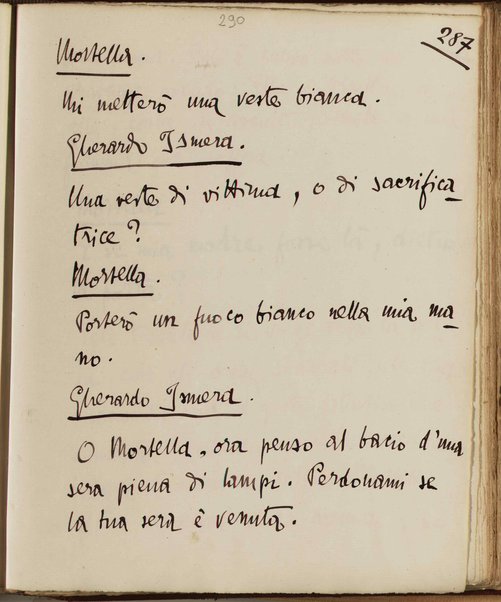 290
287
Mortella.
Mi metterò una veste bianca.
Gherardo Ismera.
Una veste di vittima, o di sacrifica-
trice?
Mortella.
Porterò un fuoco bianco nella mia ma-
no.
Gherardo Ismera.
O Mortella, ora penso al bacio d'una
sera piena di lampi. Perdonami se
la tua sera è venuta.